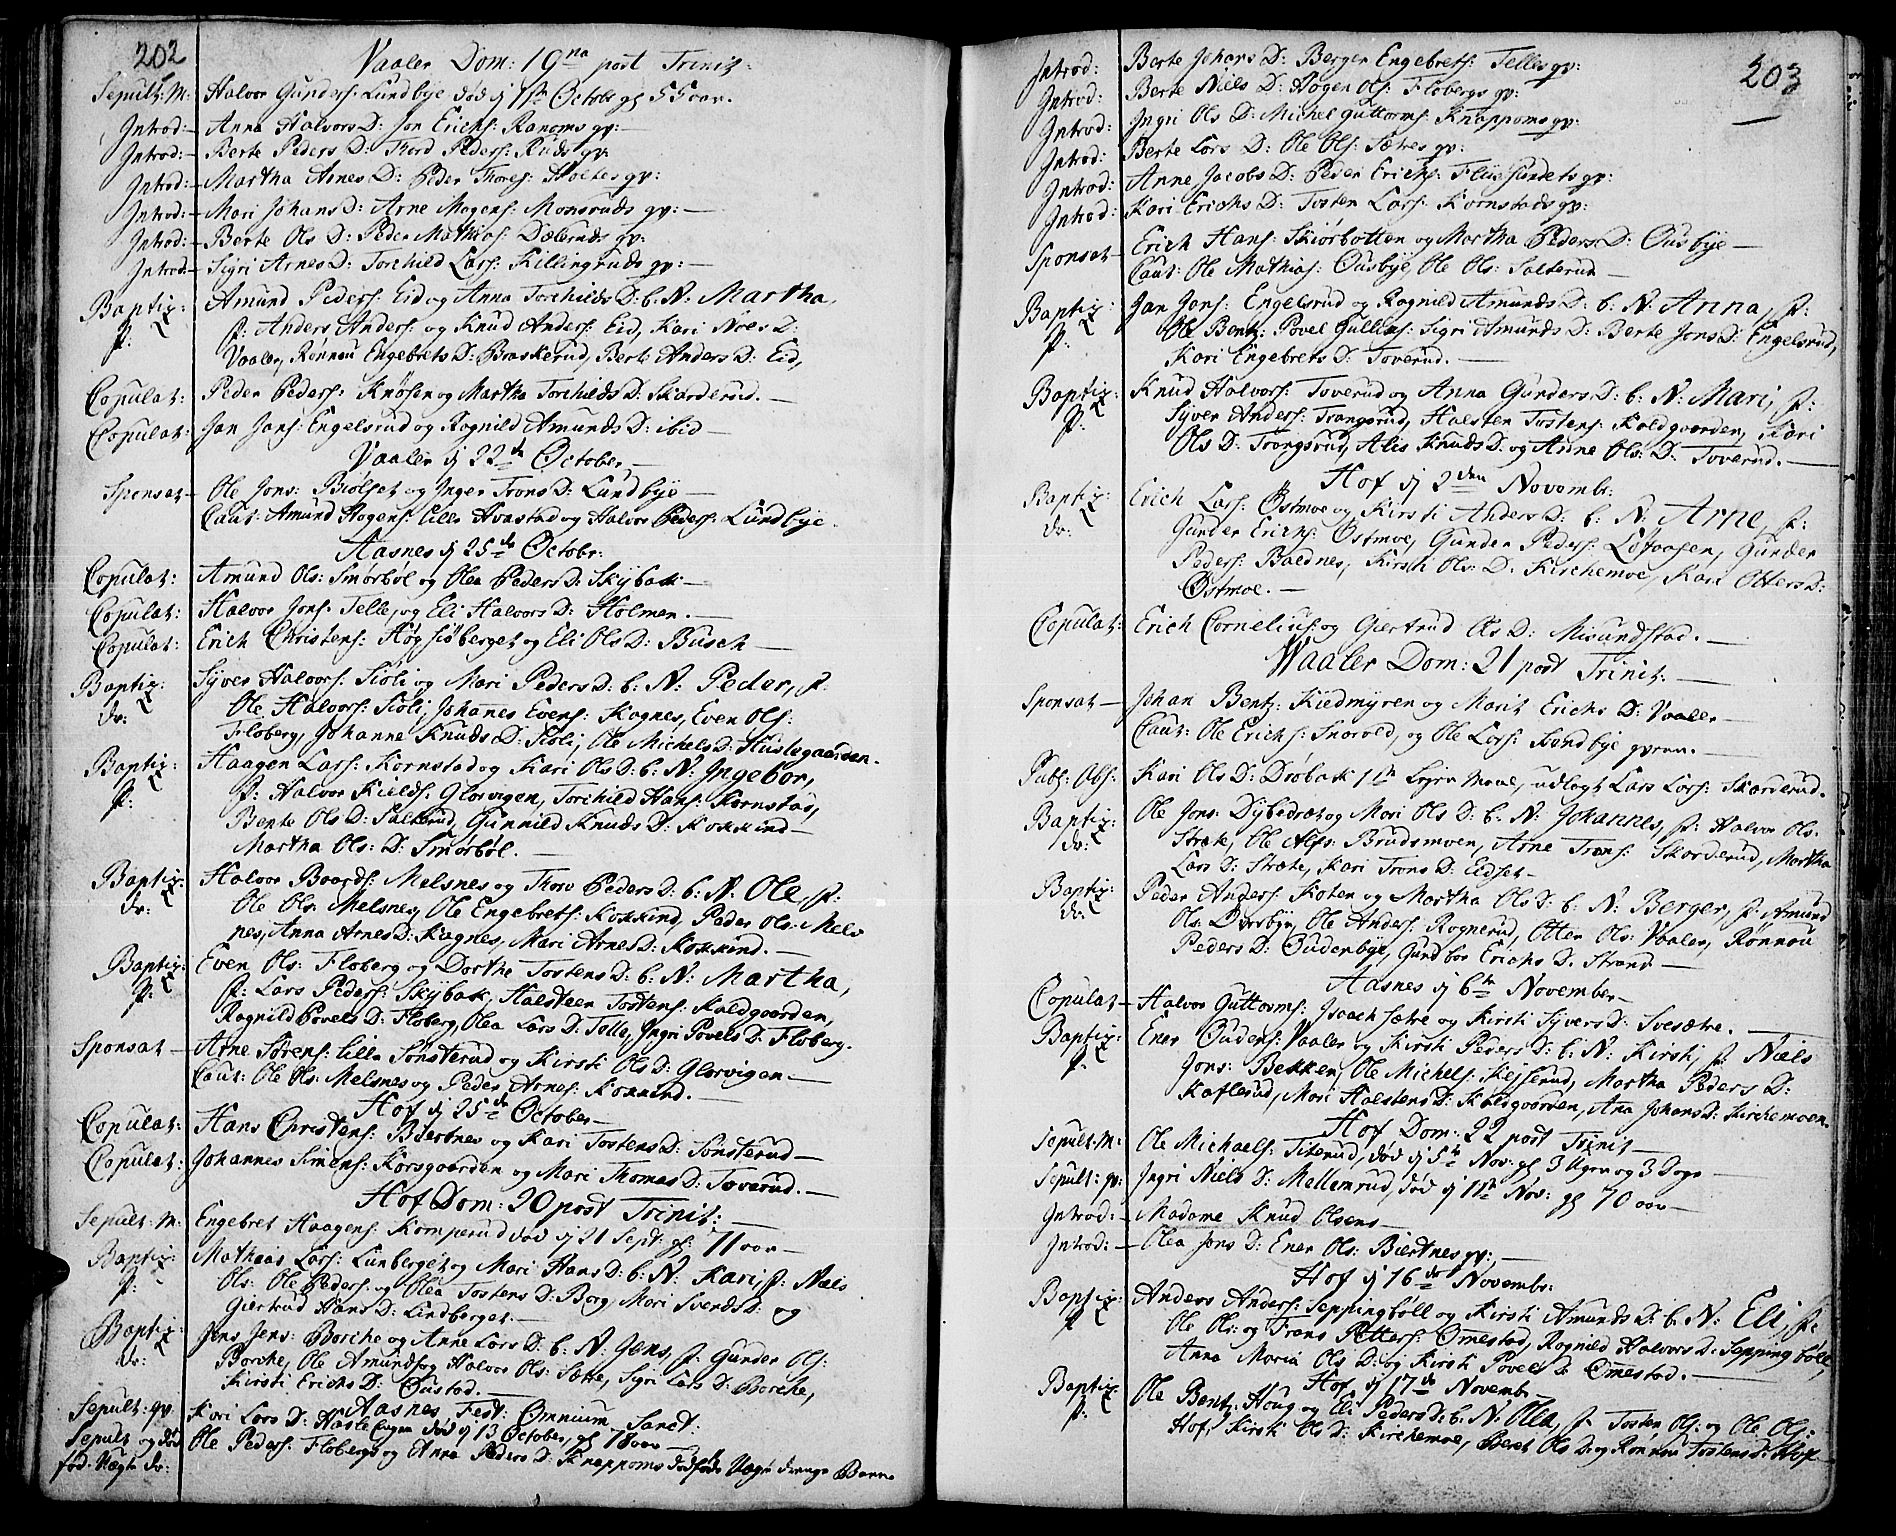 202
Vaaler Dom: 19na post Trinit:
Sepult: M: Halvor Gunders: Lundbye død d 1ste Octobr gl 55 aar.
Introd:— Anna Halvors D: Jon Erichs: Ranoms qv:—
Introd:— Berte Peders D: Thord Peders: Ruds qv:
Introd:— Martha Arnes D: Peder Thores: Holtes qv:
Introd:— Mari Johans D: Arne Mogens: Monsruds qv:—
Introd:— Berte Ols D: Peder Mathias: Dæleruds qv:
Introd— Sigri Arnes D: Torchild Lars: Killingruds qv:—
Baptiz: Amund Peders: Eid og Anna Torchilds D: b: N: Martha,
f: f: Anders Anders: og Knud Anders: Eid, Kari Noes D:
Vaaler, Rønnou Engebrets D: Braskerud, Bert: Anders D: Eid,
Copulat: Peder Peders: Knøsen og Martha Torchilds D: Skarderud.—
Copulat: Jan Jons: Engelsrud og Rognild Amunds D: ibid—
Vaaler d 22de October—
Sponsat— Ole Jons: Biølset og Inger Trons D: Lundbye—
Caut: Amund Hagens: Lille Hvastad og Halvor Peders: Lundbye.
Aasnes d 25de Octobr:
Copulat: Amund Ols: Smørbøl og Olea Peders D: Skybak—
Copulat: Halvor Jons: Telle, og Eli Halvors D: Holmen.—
Copulat: Erich Christens: Høgsiøberget og Eli Ols D: Busch—
Baptiz: Syver Halvors: Siøli og Mari Peders D: b: N: Peder, f:
dr: Ole Halvors: Siøli, Johanes Evens: Kognes, Even Ols:
Floberg, Johanne Knuds D: Siøli, Ole Michels D: Huslegaarden.
Baptiz: Haagen Lars: Kornstad og Kari Ols D: b: N: Ingebor,
f: f: Halvor Kields: Glorvigen, Torchild Hans: Kornstad,
Bente Ols D: Salterud, Gunnild Knuds D: Kokkind—
Martha Ols: D: Smørbøl.—
Baptiz: Halvor Baards: Melsnes og Thore Peders D: b: N: Ole, f:
dr: Ole Ols: Melsnes, Ole Engebrets: Kokkind, Peder Ols: Mels
nes, Anna Arnes D: Kognes, Mari Arnes D: Kokkind.—
Baptiz: Even Ols: Floberg og Dorthe Tostens D: b: N: Martha,
f: f: Lars Peders: Skybak, Halsteen Tostens: Koldgaarden,
Rognild Povels D: Floberg, Olea Lars D: Telle, Ingri Povels D: Floberg.
Sponsat— Arne Sørens: Lille Sønsterud og Kirsti Ols D: Glorvigen—
Caut: Ole Ols: Melsnes og Peder Arnes: Kokkind.—
Hof d 25de October—
Copulat: Hans Christens: Biertnes og Kari Tostens D: Sønsterud—
Copulat: Johannes Simens: Korsgaarden og Mari Thomas D: Toverud.—
Hof Dom: 20 post Trinit:—
Sepult: M: Engebret Haagens: Komperud død d 21 Sept: gl: 71 aar—
Baptiz: Mathias Lars: Lunberget og Mari Hans D: b: N: Kari, f: Niels
f: Ols: Ole Peders: og Olea Tostens D: Borg, Mari Svends D: og
Giertrud Hans D: Lindberget.—
Baptiz: Jens Jens: Borche og Anne Lars D: b: N: Jens, f: Gunder Ols:
dr: Borche, Ole Amunds: og Halvor Ols: Sætte, Sigri Lars D: Borche,
Kirsti Erichs D: Oustad.—
Aasnes Fest: Omnium Sanct:
Sepult: qv: Kari Lars D: Hasle Engen død d 13 October, gl 18 aar—
Sepult og død Ole Peders: Flobergs og Anna Peders D: Knappoms dødfødte Uægte drenge Barn
fød: Uægte dr:
203
Introd: Berte Johans D: Berger Engebrets: Telles qv:
Introd: Berte Niels D: Hogen Ols: Flobergs qv:
Introd: Ingri Ols D: Michel Guttorms: Knappoms qv:
Introd: Berte Lars D: Ole Ols: Sætres qv:
Introd: Anne Jacobs D: Peder Erichs: Flüesundets qv:
Introd: Kari Erichs D: Tosten Lars: Kornstads qv:
Sponsat— Erich Hans: Skiørbotten og Martha Peders D: Ousbye—
Caut: Ole Mathias: Ousbye, Ole Ols: Salterud—
Baptiz: Jan Jons: Engelsrud og Rognild Amunds D: b: N: Anna, f:
f: Ole Bent: Povel Gullins: Sigri Amunds D: Berte Jons D: Engelsrud,
Kari Engebrets D: Toverud.—
Baptiz: Knud Halvors: Toverud og Anna Gunders D: b: N: Mari, f:
f: Syver Anders: Trangsrud, Halsten Tostens: Koldgaarden, Kari
Ols D: Trangsrud, Alis Knuds D: og Anne Ols: D: Toverud.—
Hof d 2den Novembr:
Baptiz: Erich Lars: Østmoe og Kirsti Anders D: b: N: Arne, f:
dr: Gunder Erichs: Østmoe, Gunder Peders: Løvaasen, Gunder
Peders: Baldnes, Kirsti Ols: D: Kirchemoe, Kari Otters D:
Østmoe.—
Copulat: Erich Cornelius: og Giertrud Ols D: Misundstad.—
Waaler Dom: 21 post Trinit:—
Sponsat— Johan Bent: Kiedmyren og Marit Erichs D: Vaaler—
Caut: Ole Erichs: Snorold, og Ole Lars: Sundbye qværn.—
Publ: Abs: Kari Ols D: Drøbak 1ste Leierm, udlagt Lars Lars: Skarderud.
Baptiz: Ole Jons: Dybedræt og Mari Ols D: b: N: Johannes, f: Halvor Ols:
dr: Stræte, Ole Alfs: Brudsmoen, Arne Trons: Skarderud, Martha
Lars D: Stræte, Kari Trons D: Eidset—
Baptiz: Peder Anders: Koten og Martha Ols D: b: N: Berger, f: Amund
dr: Ols: Dørrbye, Ole Anders: Rognerud, Otter Ols: Vaaler, Rønnou
Peders D: Oudenbye, Gundbor Erichs D: Strand—
Aasnes d 6te November—
Copulat— Halvor Guttorms: Isaach sætre og Kirsti Syvers D: Svesætre.—
Baptiz: Ener Oudens: Vaaler og Kirsti Peders D: b: N: Kirsti, f: Niels
f: Jons: Bekken, Ole Michels: Kejserud, Martha Peders D:
Kaflerud, Mari Halstens D: Koldgaarden, Ana Johans D: Kirchemoen.
Hof Dom: 22 post Trinit—
Sepult: M: Ole Michaels: Titerud, død d 5te Nov: gl 3 Ugen og 3 Dage—
Sepult: qv: Ingri Niels D: Mellemrud, død d 11te Nov: gl 70 aar—
Introd:— Madame Knud Olsens—
Introd:— Olea Jons D: Ener Ols: Biertnes qv:—
Hof d 16de Novembr:
Baptiz: Anders Anders: Seppingbøll og Kirsti Amunds D: b: N: Eli, f:
f: Ole Ols: og Frans Petters: Omestad, Rognild Halvors D: Seppingbøll,
Anna Maria Ols D: og Kirsti Povels D: Omestad.—
Hof d 17de Novembr—
Baptiz: Ole Bent: Houg og Eli Peders D: b: N: Olea, f: Tosten Ols: og Ole Ols:
f: Hof, Kirsti Ols D: Kirchemoe, Beret Ols D: og Rønnou Tostens D: Hof—